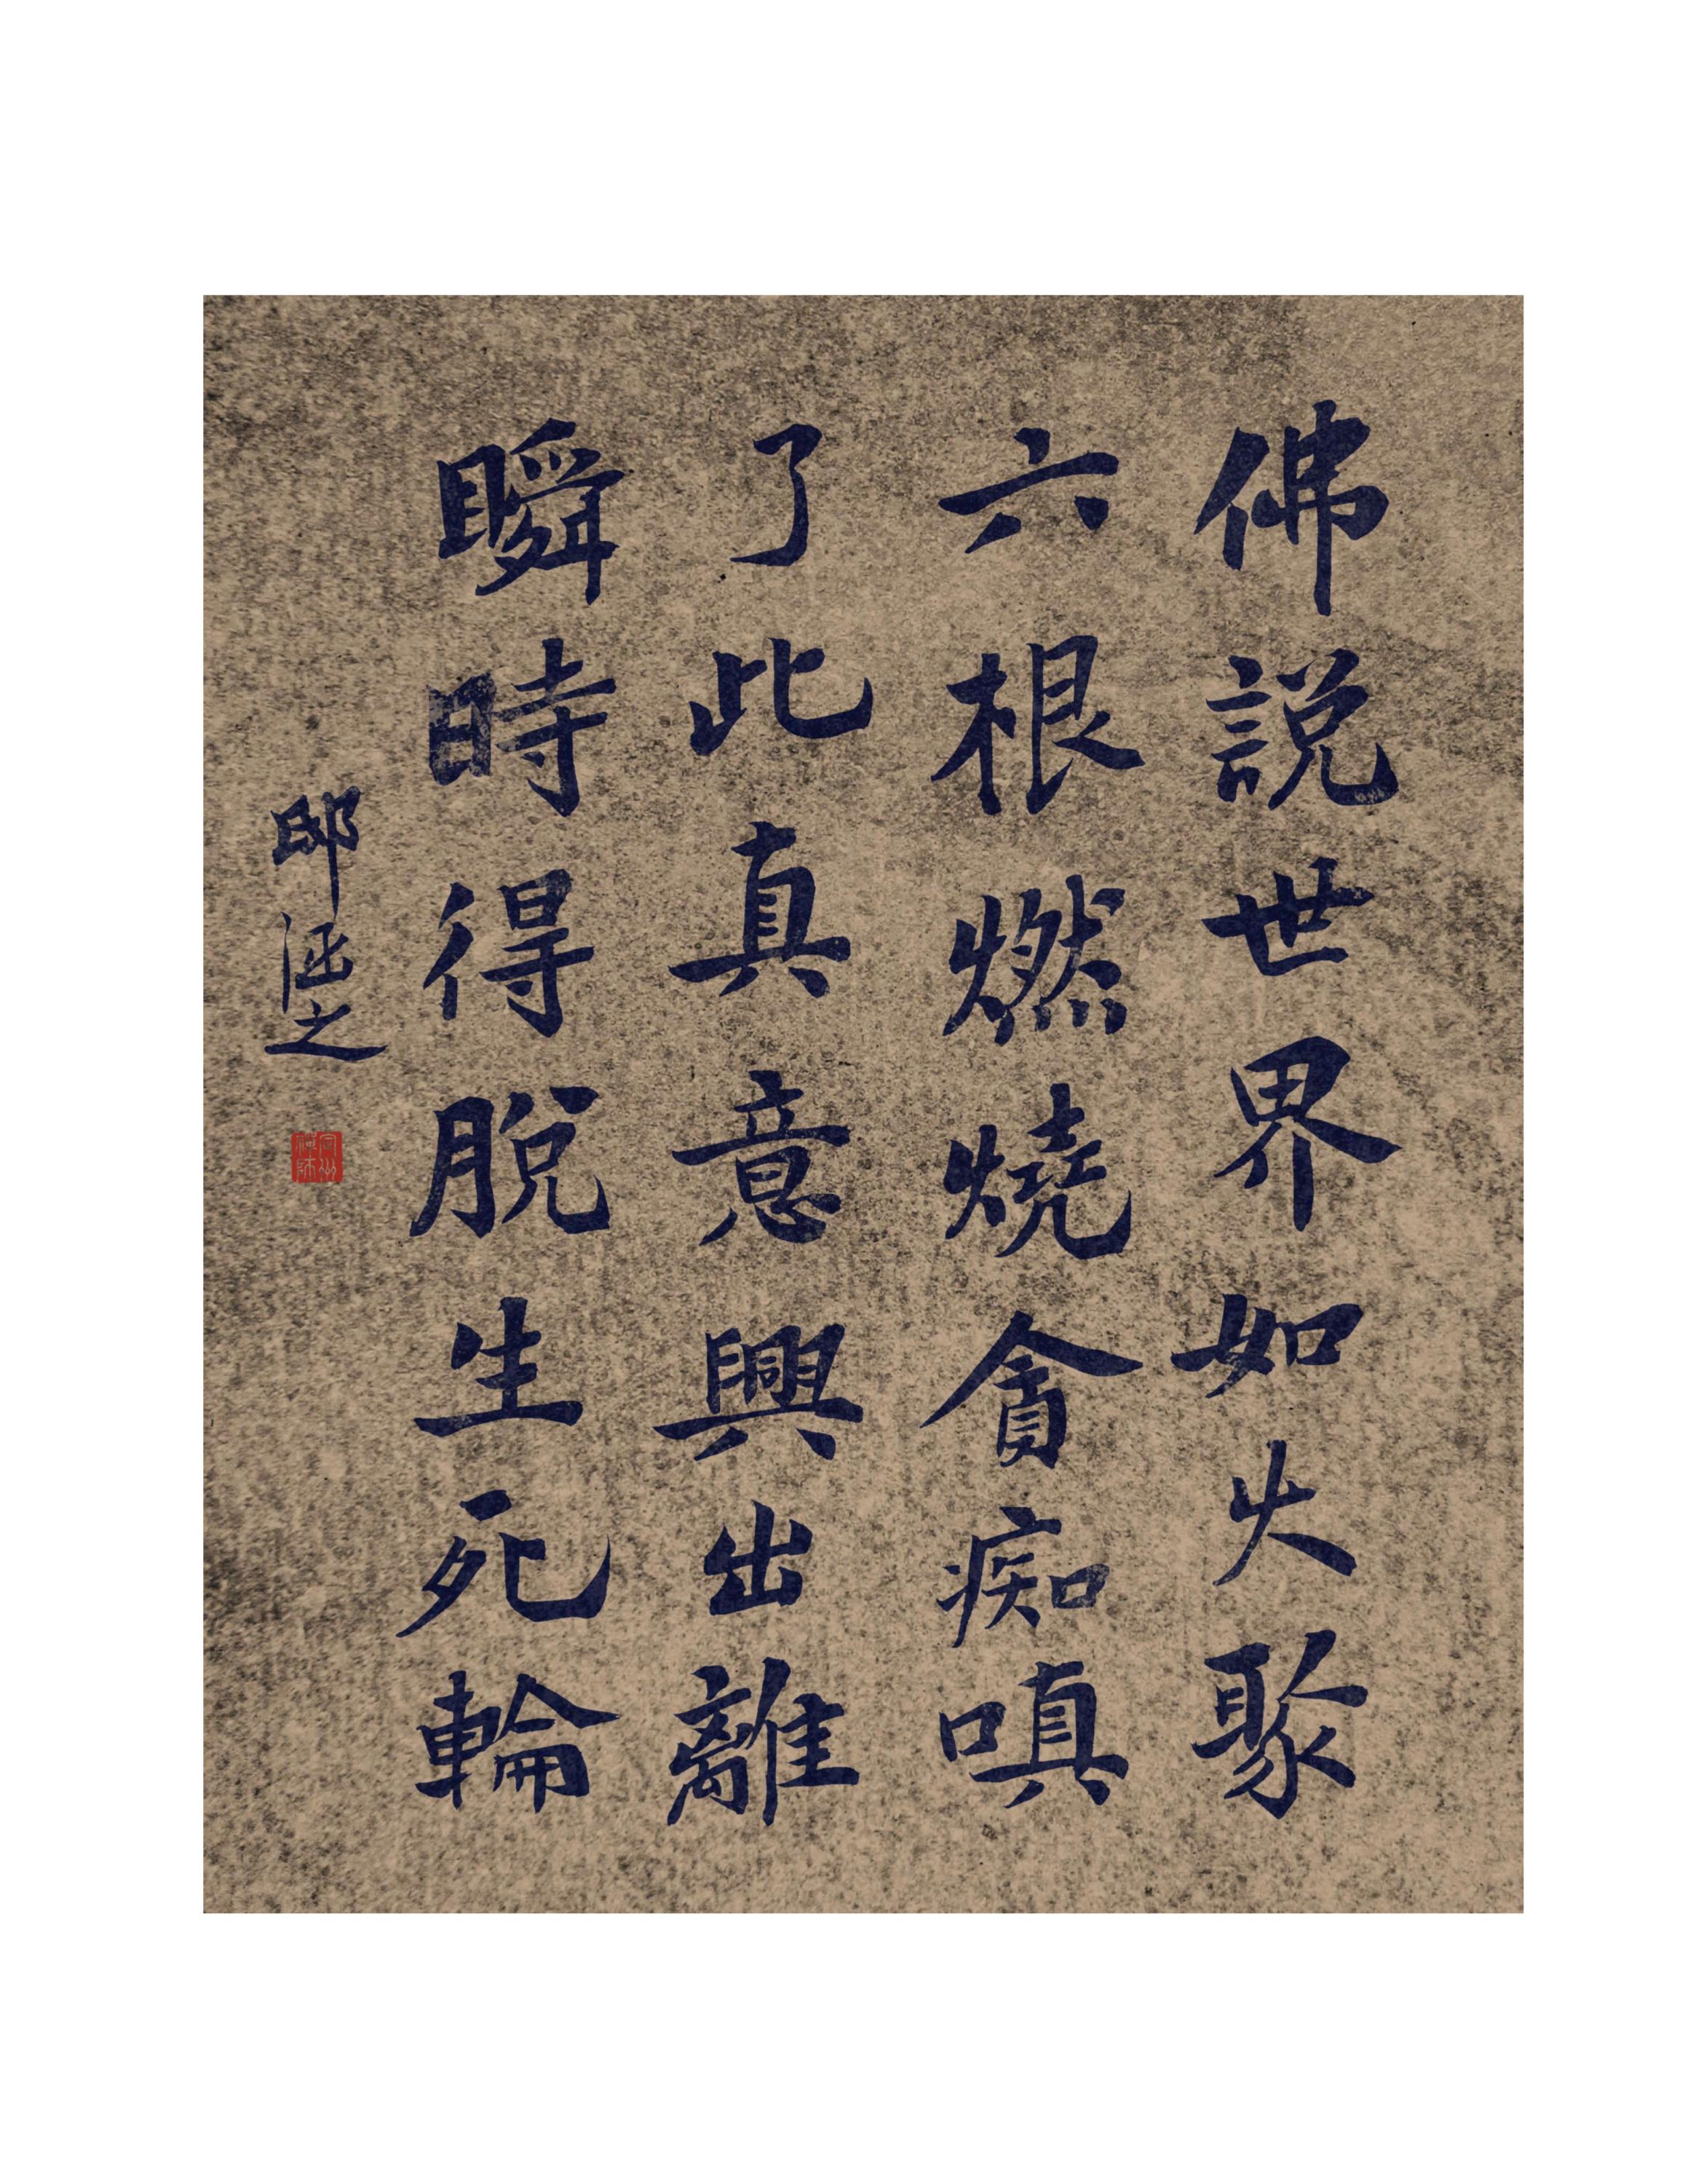 佛説世界如火聚
六根燃燒貪痴嗔
了此真意興出離
瞬時得脫生死輪
邸涵之